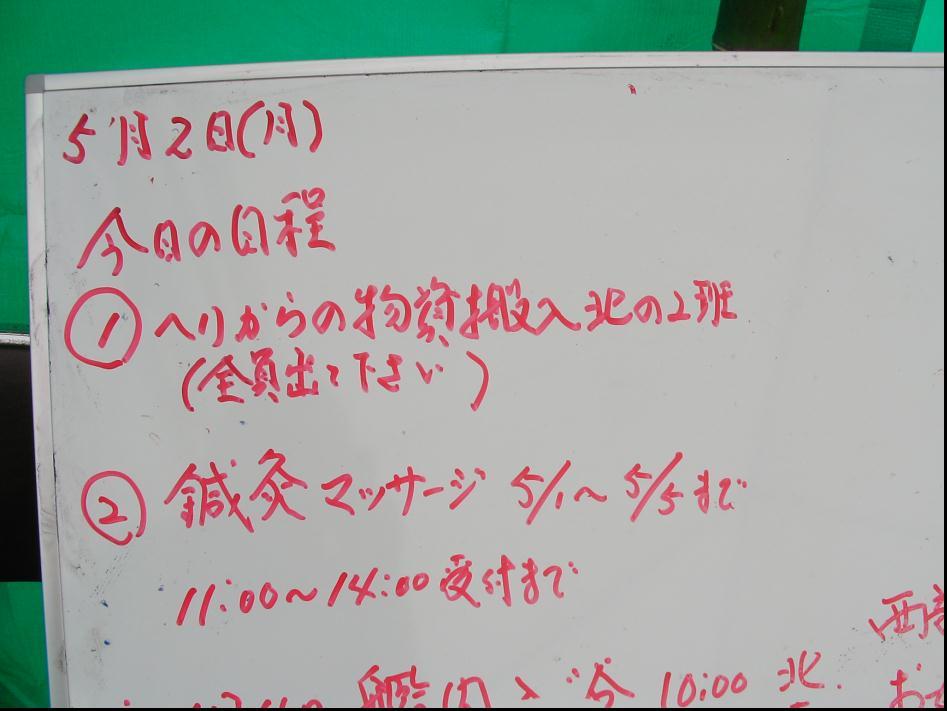 5月2日(月)
今日の日程
① ヘリからの物資搬入 北の2班
(全員出て下さい)
② 鍼灸マッサージ 5/1~5/5まで
11:00~14:00 受付まで
10:00 北